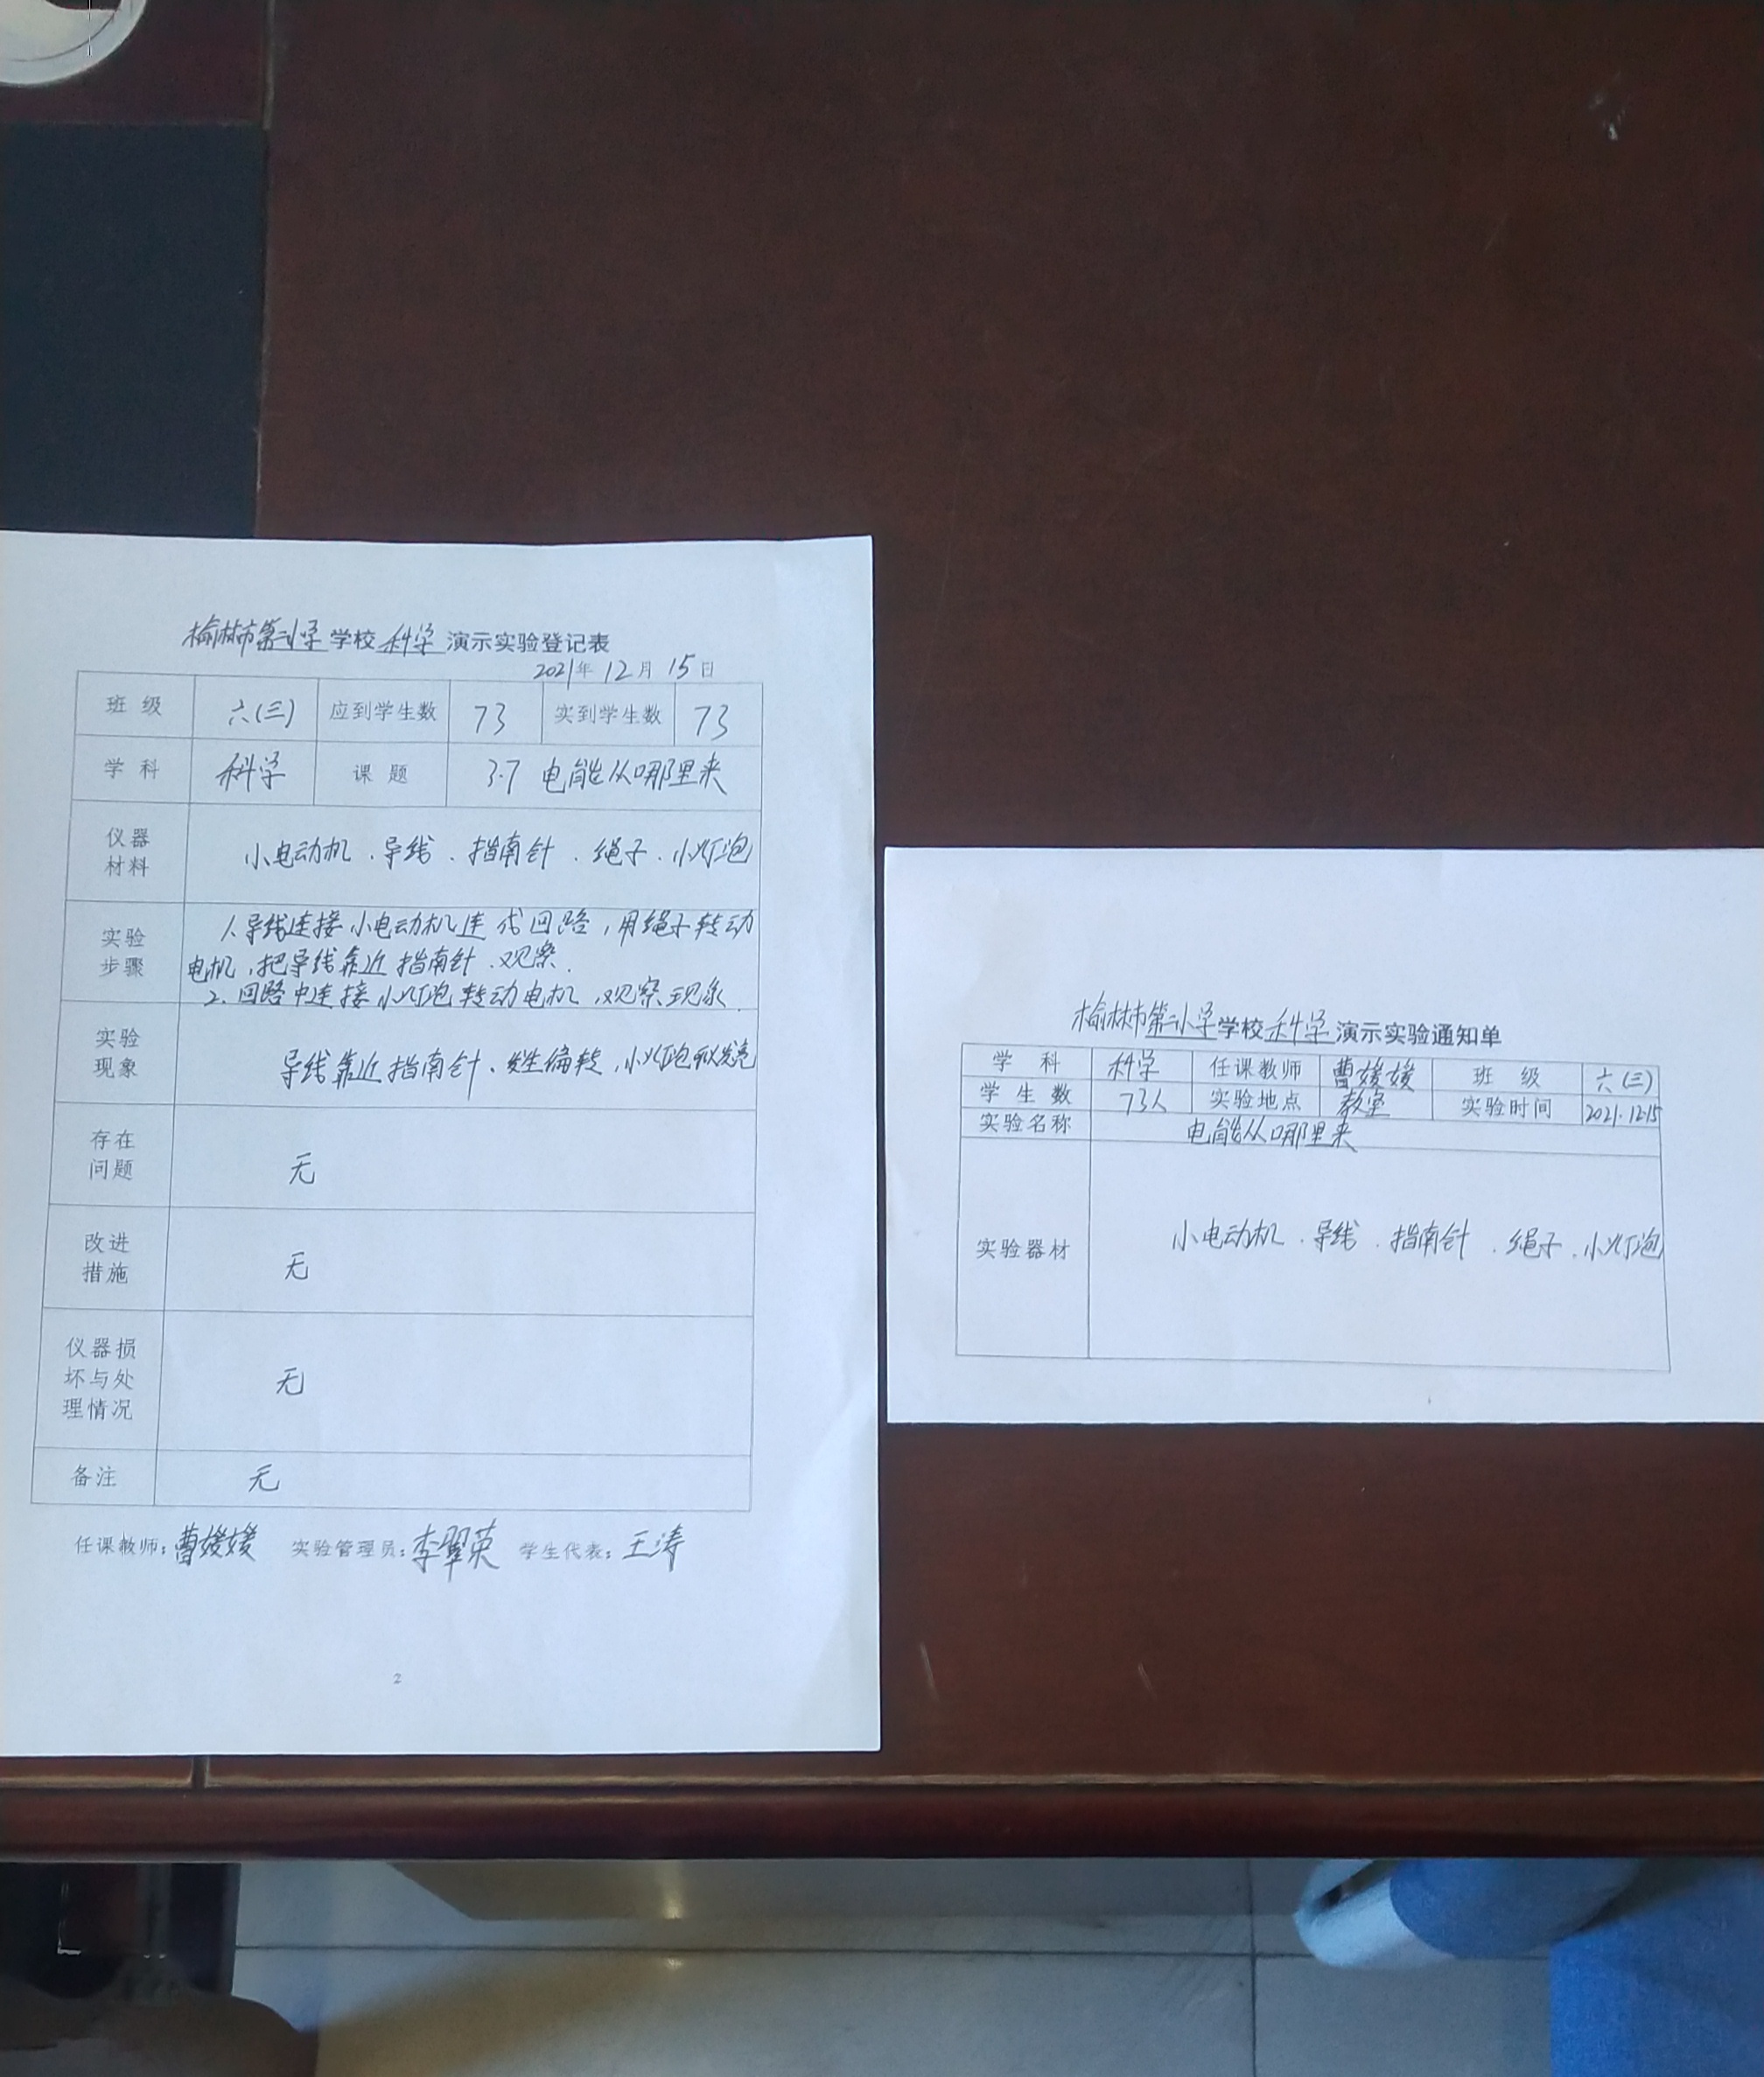 榆林市第二小学学校科学演示实验登记表
2021年12月15日
班级 六(三) 应到学生数 73 实到学生数 73
学科 科学 课题 3.7 电能从哪里来
仪器材料 小电动机、导线、指南针、绳子、小灯泡
实验步骤 1.导线连接小电动机连成回路，用绳子转动
电机，把导线靠近指南针、观察.
2.回路中连接小灯泡转动电机，观察现象.
实验现象 导线靠近指南针、发生偏转，小灯泡发亮
存在问题 无
改进措施 无
仪器损坏与处理情况 无
备注 无
任课教师：曹媛媛 实验管理员：李翠英 学生代表：王涛
2
榆林市第二小学学校科学演示实验通知单
学科 科学 任课教师 曹媛媛 班级 六(三)
学生数 73人 实验地点 教室 实验时间 2021.12.15
实验名称 电能从哪里来
实验器材 小电动机、导线、指南针、绳子、小灯泡